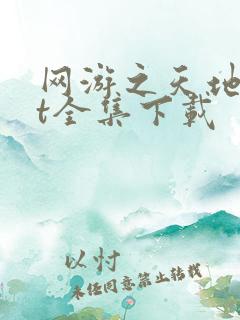 网游之天地
t全集下载
以忖
未经同意禁止转载